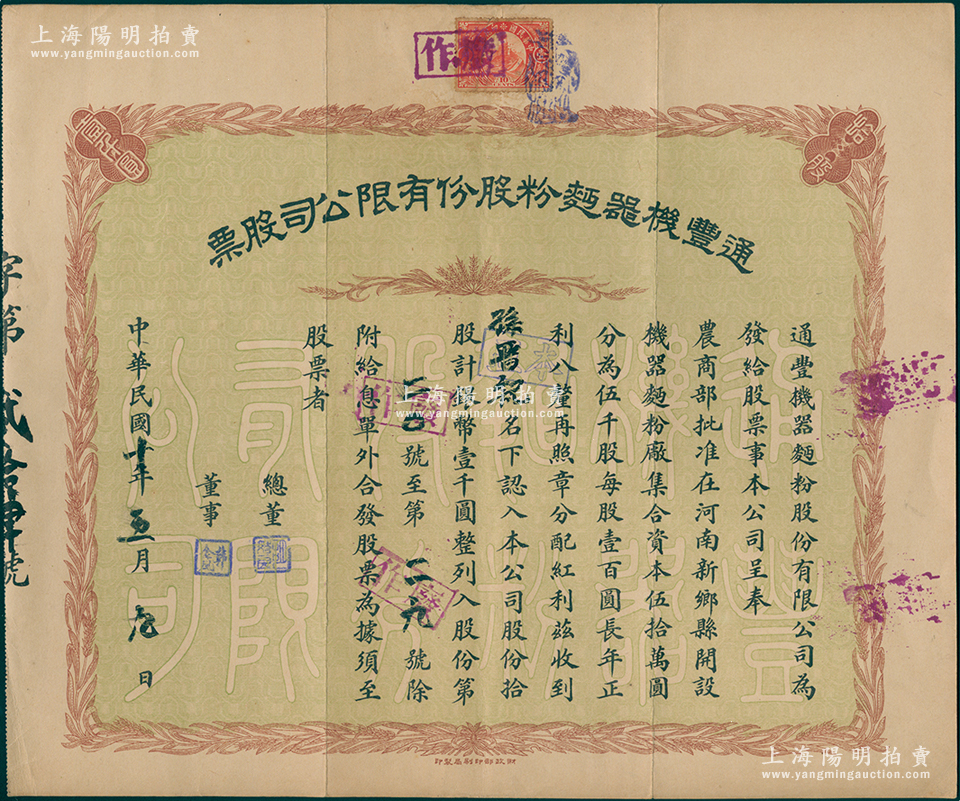 上海陽明拍賣
www.yangmingauction.com
上海陽明拍賣
www.yangmingauction.com
作廢
拾股
壹千圓
通豐機器麵粉股份有限公司股票
通豐機器麵粉股份有限公司為
發給股票事本公司呈奉
農商部批准在河南新鄉縣開設
機器麵粉廠集合資本伍拾萬圓
分為伍千股每股壹百圓長年正
利八釐再照章分配紅利茲收到
名下認入本公司股份拾
股計揚幣壹千圓整列入股份第
二一〇號至第二一九號除
附給息單外合發股票為據須至
股票者
總董
董事
中華民國十年五月九日
作廢
字第貳拾肆號
財政部印刷局製印
上海陽明拍賣
www.yangmingauction.com
上海陽明拍賣
www.yangmingauction.com